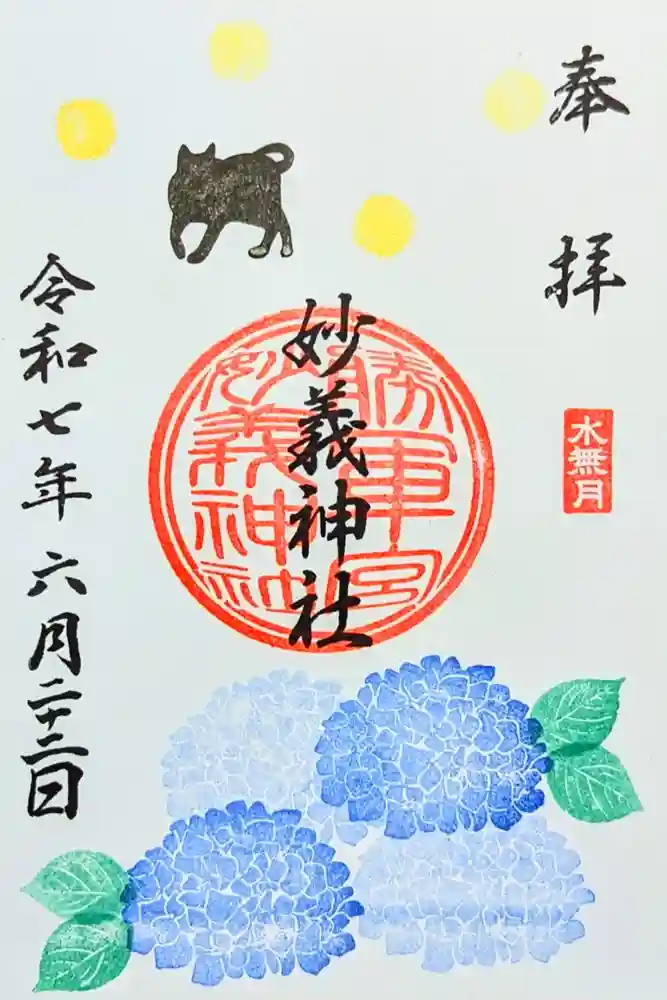 奉拝
水無月
勝軍宮
妙義神社
妙義神社
令和七年六月二十二日